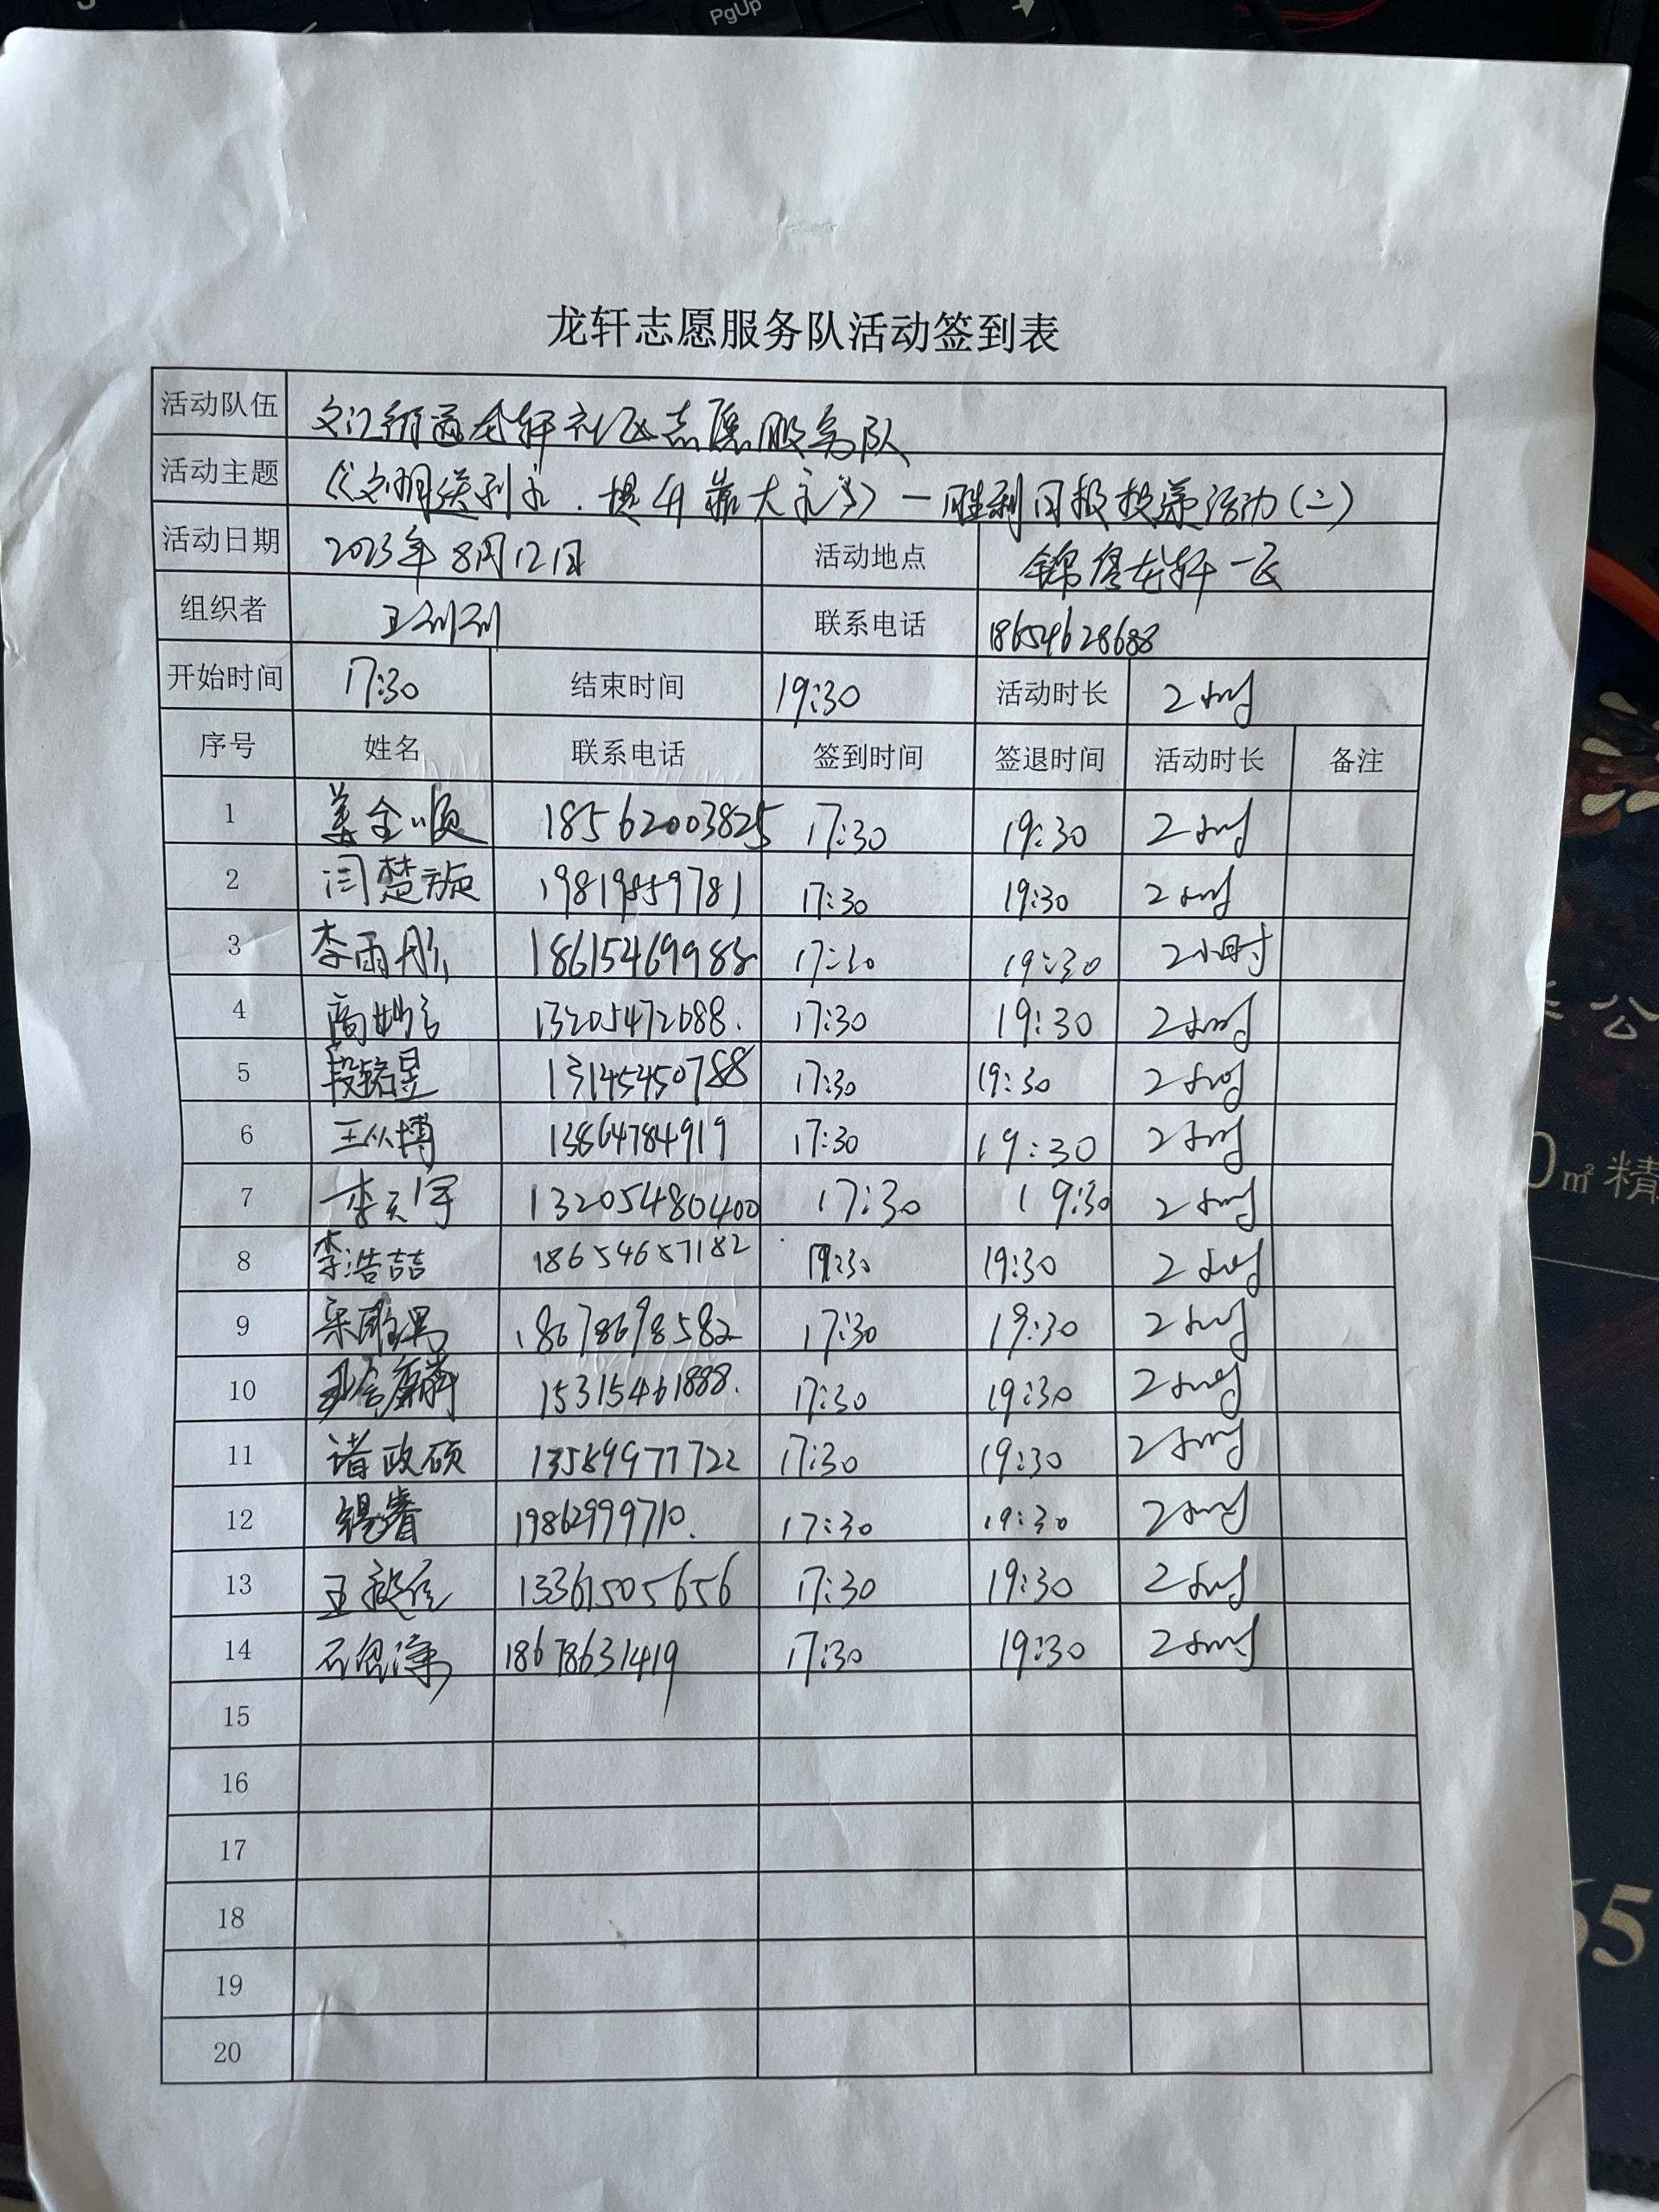 PgUp
龙轩志愿服务队活动签到表
活动队伍 文汇街道龙轩社区志愿服务队
活动主题 《文明送到家.提升靠大家》—胜利日报投递活动(二)
活动日期 2023年8月12日 活动地点 锦唐龙轩一区
组织者 王利利 联系电话 18654628688
开始时间 17:30 结束时间 19:30 活动时长 2小时
序号 姓名 联系电话 签到时间 签退时间 活动时长 备注
1 姜全顺 18562003825 17:30 19:30 2小时
2 闫楚璇 19819859781 17:30 19:30 2小时
3 李雨彤 18615469988 17:30 19:30 2小时
4 商 13205472688. 17:30 19:30 2小时
5 段铭昱 13145450788 17:30 19:30 2小时
6 王从博 13864784919 17:30 19:30 2小时
7 李天宇 13205480400 17:30 19:30 2小时
8 李浩喆 18654657182 19:30 19:30 2小时
9 18678698582 17:30 19:30 2小时
10 15315461888. 17:30 19:30 2小时
11 诸政硕 13589977722 17:30 19:30 2小时
12 19862999710. 17:30 19:30 2小时
13 王 13361505656 17:30 19:30 2小时
14 石 18678631419 17:30 19:30 2小时
15
16
17
18
19
20
公
0㎡精
65